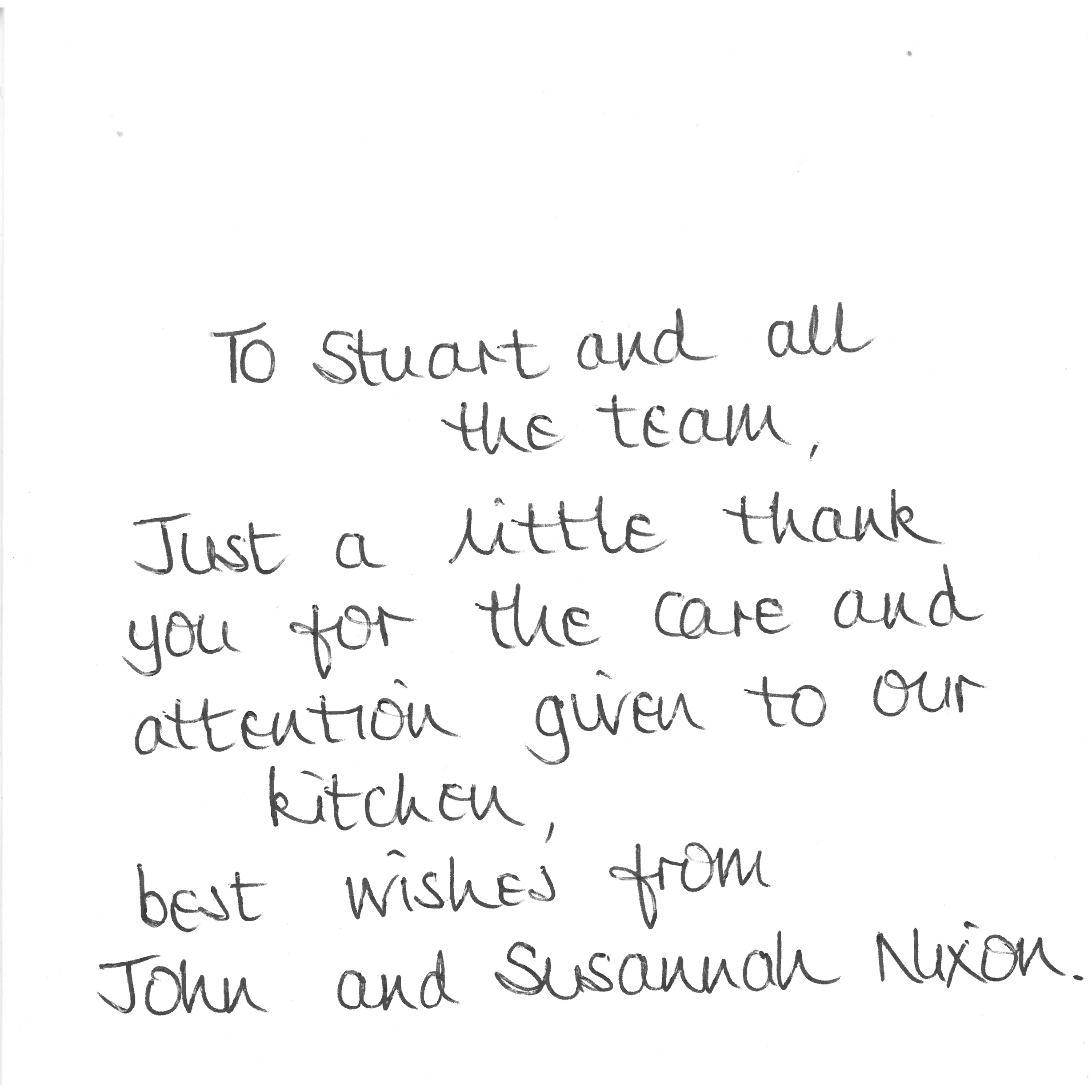 To Stuart and all
the team,
Just a little thank
you for the care and
attention given to our
kitchen,
best wishes from
John and Susannah Nixon.